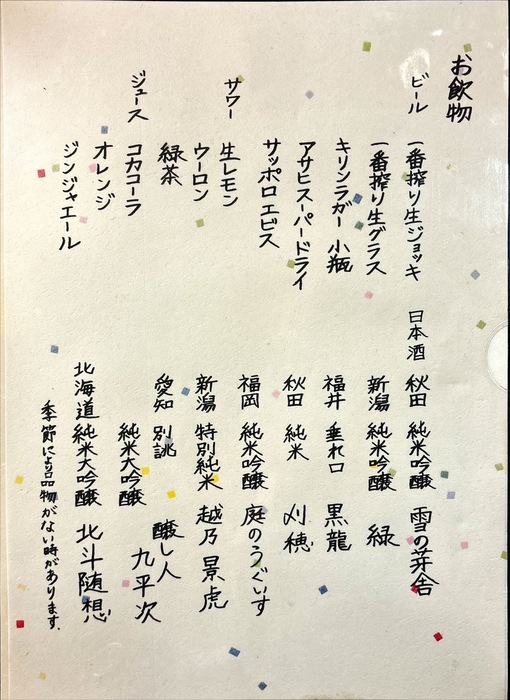 お飲物
ビール
一番搾り生ジョッキ
一番搾り生グラス
キリンラガー 小瓶
アサヒスーパードライ
サッポロエビス
サワー
生レモン
ウーロン
緑茶
ジュース
コカコーラ
オレンジ
ジンジャエール
日本酒
秋田 純米吟醸 雪の茅舎
新潟 純米吟醸 緑
福井 垂れ口 黒龍
秋田 純米 刈穂
福岡 純米吟醸 庭のうぐいす
新潟 特別純米 越乃景虎
愛知 別誂 醸し人
純米大吟醸 九平次
北海道 純米大吟醸 北斗随想
季節により品物がない時があります.